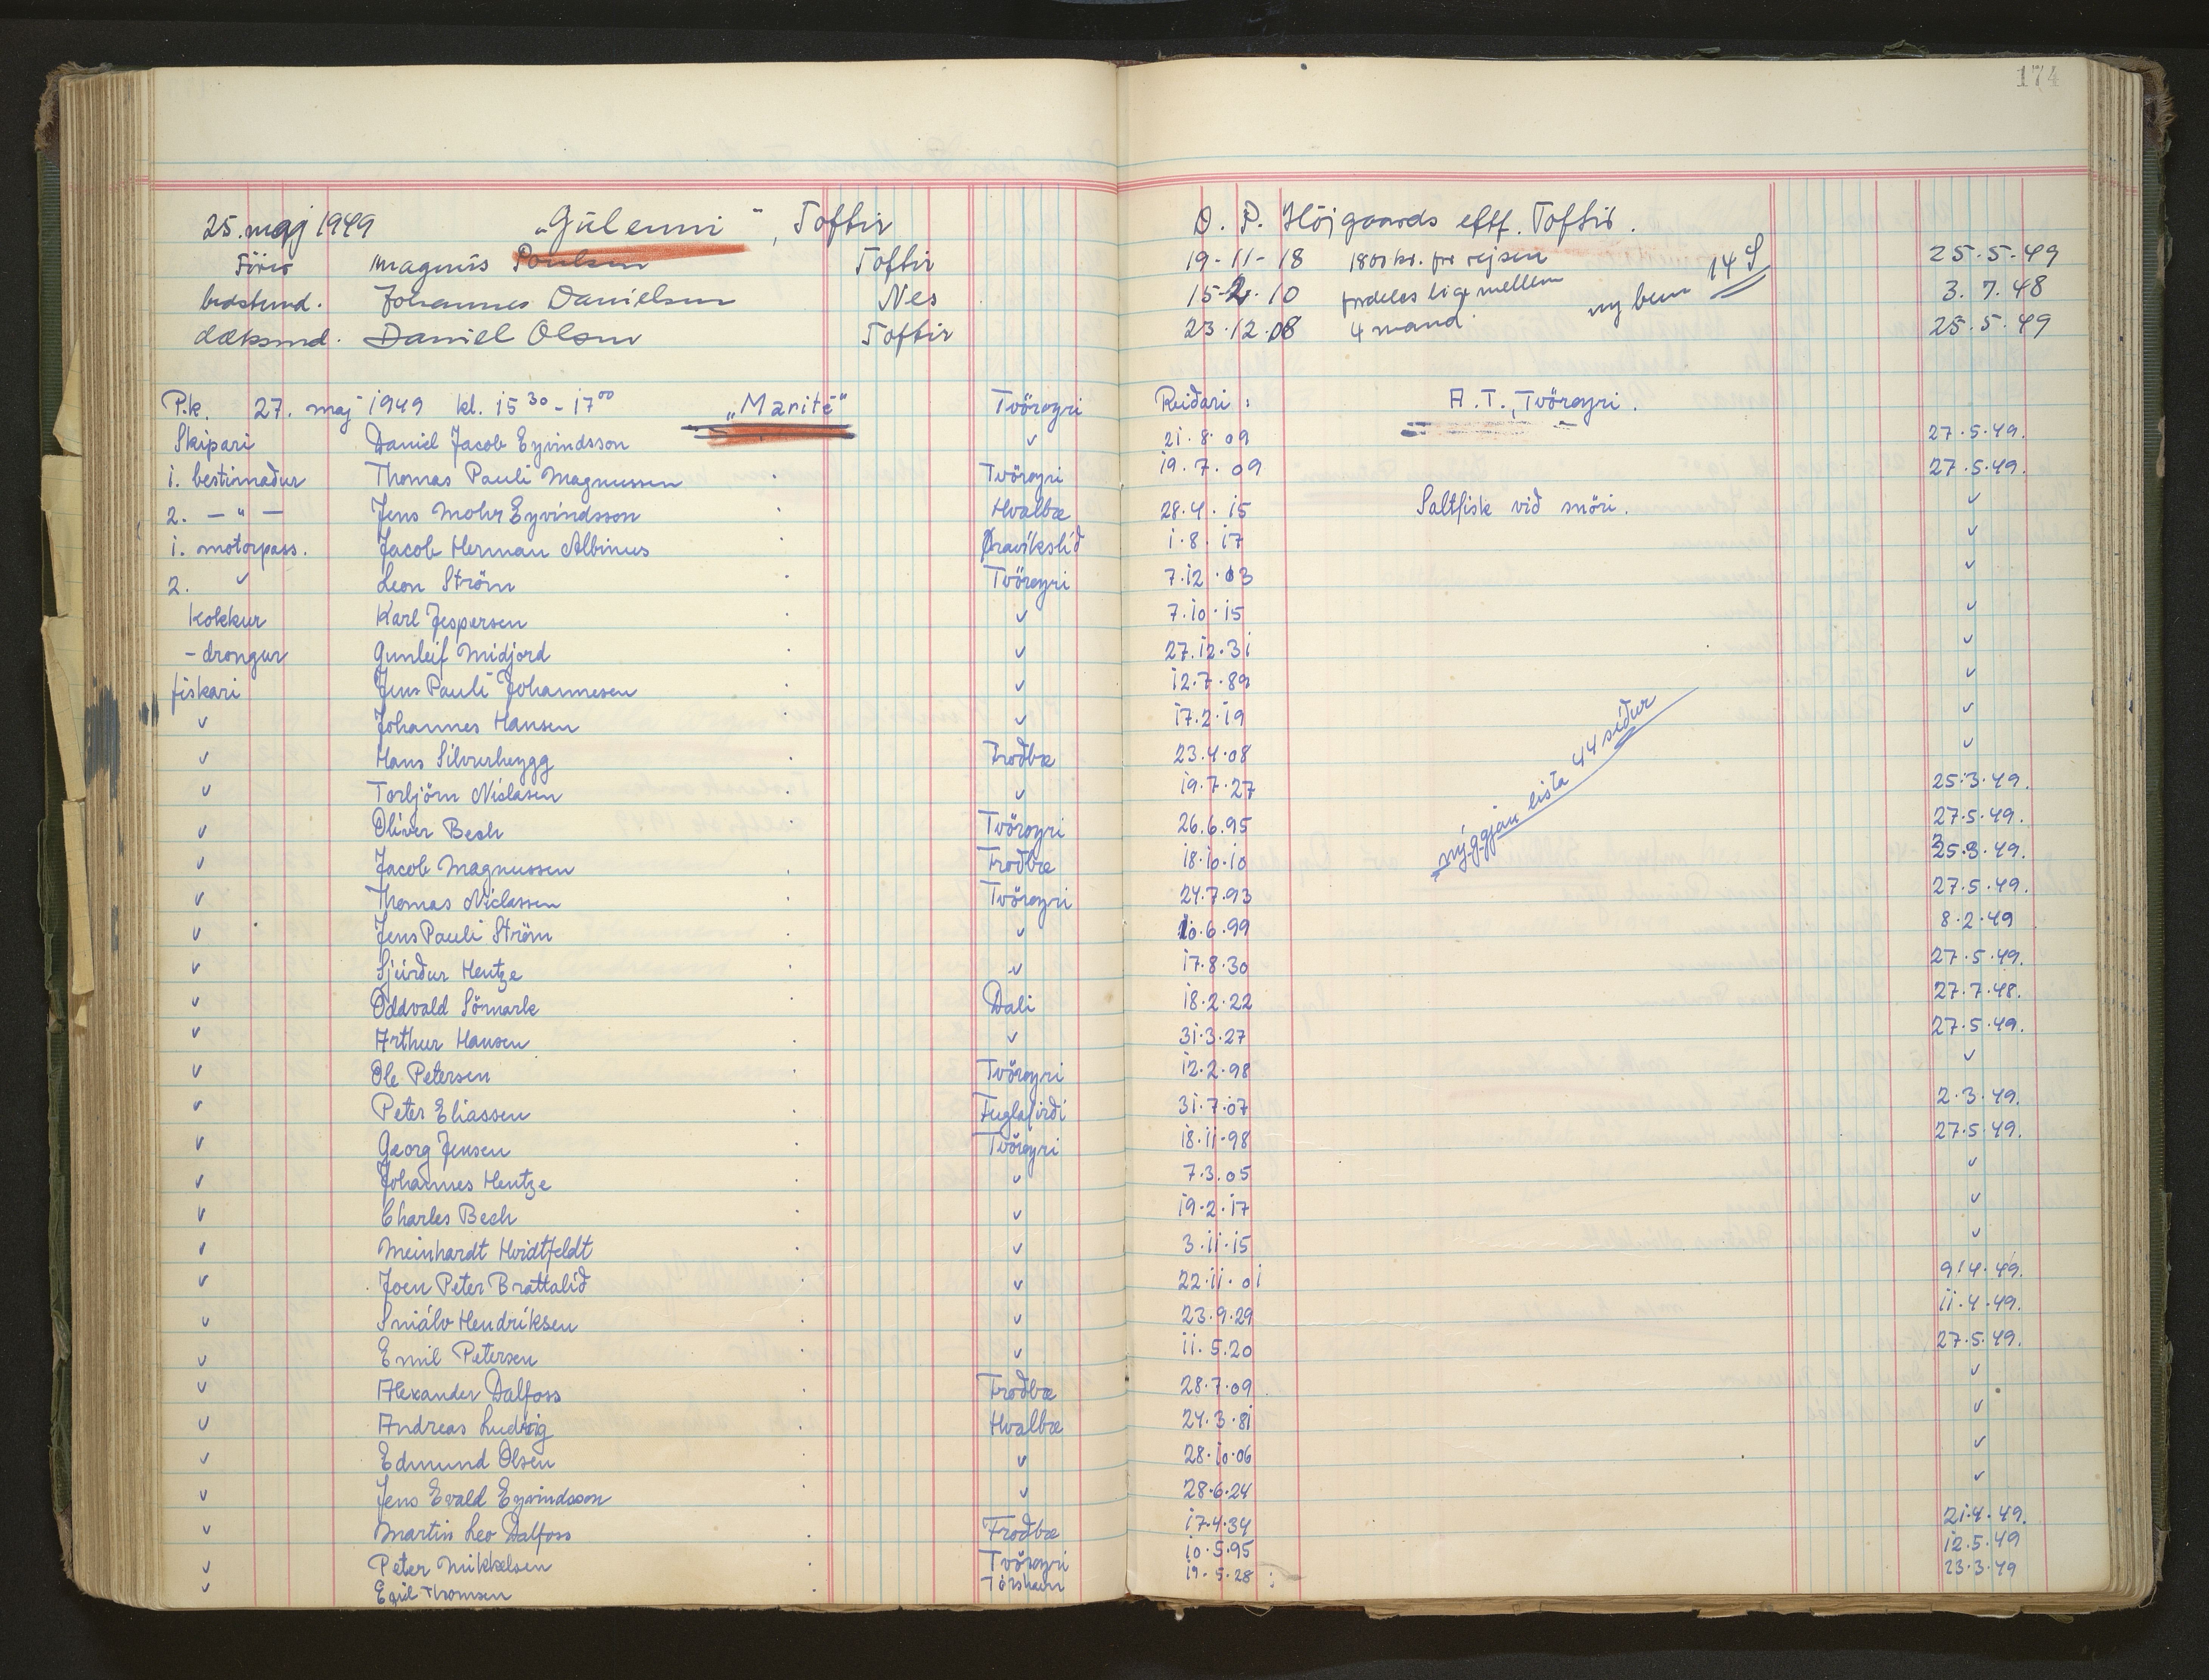 174
25. maj 1949 „Gulenni“, Toftir O. P. Höjgaards eftf. Toftir.
Förer Magnus Poulsen Toftir 19-11-18 1800 kr. pr rejsen 25.5.49
bedstmd. Johannes Danielsen Nes 15-2-10 fordeles lige mellem 3. 7. 48
dæksmd. Daniel Olsen Toftir 23.12.08 4 mand 25.5.49
P.k. 27. maj 1949 kl. 15 30 - 17 00 „Marité“ Tvöroyri Reiðari: A. T., Tvöroyri.
Skipari Daniel Jacob Eyvindsson ✓ 21.8.09 27.5.49.
1. bestimaður Thomas Pauli Magnussen Tvöroyri 19.7.09 27.5.49.
2. — " — Jens Mohr Eyvindsson Hvalbæ 28.4.15 Saltfisk við snöri. ✓
1. motorpass. Jacob Herman Albinus Øravíkslíð 1.8.17 ✓
2. ✓ Leon Ström Tvöroyri 7.12.03 ✓
Kokkur Karl Jespersen ✓ 7.10.15 ✓
-drongur Gunleif Midjord ✓ 27.12.31 ✓
fiskari Jens Pauli Johannesen ✓ 12.7.89 ✓
✓ Johannes Hansen ✓ 17.2.19 ✓
✓ Hans Silverheygg Froðbæ 23.4.08 ✓
✓ Torbjörn Niclasen ✓ 19.7.27 25.3.49.
✓ Oliver Bech Tvöroyri 26.6.95 27.5.49.
✓ Jacob Magnussen Froðbæ 18.10.10 nýggjan lista 44 síður 25.3.49.
✓ Thomas Niclassen Tvöroyri 24.7.93 27.5.49.
✓ Jens Pauli Ström ✓ 10.6.99 8.2.49
✓ Sjúrður Hentze ✓ 17.8.30 27.5.49.
✓ Oddvald Sörmark Dali 18.2.22 27.7.48.
✓ Arthur Hansen ✓ 31.3.27 27.5.49.
✓ Ole Petersen Tvöroyri 12.2.98 ✓
✓ Peter Eliassen Fuglafirði 31.7.07 2.3.49.
✓ Georg Jensen Tvöroyri 18.11.98 27.5.49.
✓ Johannes Hentze ✓ 7.3.05 ✓
✓ Charles Bech ✓ 19.2.17 ✓
✓ Meinhardt Hvidtfeldt ✓ 3.11.15 ✓
✓ Joen Peter Brattalíð ✓ 22.11.01 9.4.49.
✓ Sniálv Hendriksen ✓ 23.9.29 11.4.49.
✓ Emil Petersen ✓ 11.5.20 27.5.49.
✓ Alexander Dalfoss Froðbæ 28.7.09 ✓
✓ Andreas Ludvig Hvalbæ 24.3.81 ✓
✓ Edmund Olsen ✓ 28.10.06 ✓
✓ Jens Evald Eyvindsson ✓ 28.6.24 ✓
✓ Martin Leo Dalfoss Froðbæ 17.4.34 21.4.49.
✓ Peter Mikkelsen Tvöroyri 10.5.95 12.5.49
✓ Egil Thomsen Tórshavn 19.5.28 23.3.49